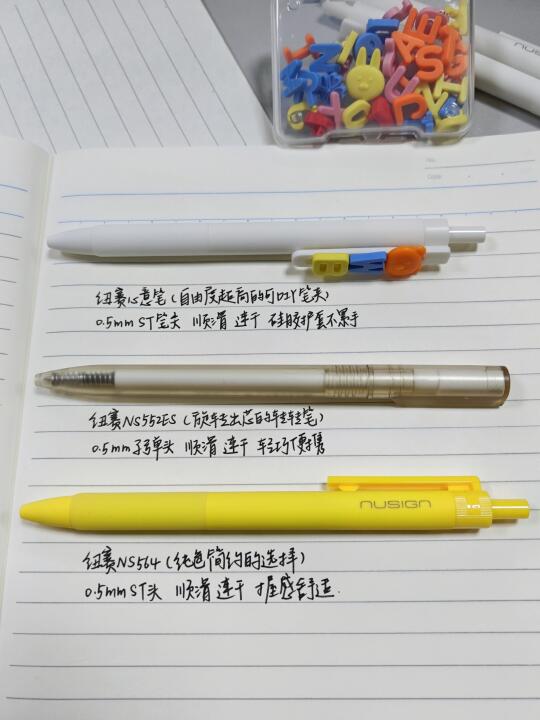 nusign
No.
Date
纽赛心意笔(自由度超高的可DIY笔夹)
0.5mm ST笔尖 顺滑 速干 硅胶护套不累手
纽赛NS552ES(旋转出芯的转转笔)
0.5mm子弹头 顺滑 速干 轻巧便携
nusign
纽赛NS564(纯色简约的选择)
0.5mm ST头 顺滑 速干 握感舒适.